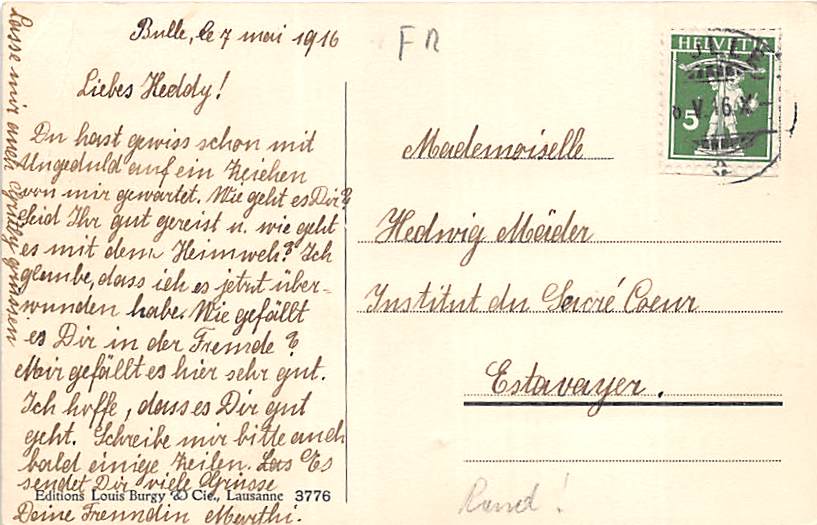 Bulle, le 7 mai 1916
Liebes Heddy!
Du hast gewiss schon mit
Ungeduld auf ein Zeichen
von mir gewartet. Wie geht es Dir?
Seid Ihr gut gereist u. wie geht
es mit dem Heimweh? Ich
glaube, dass ich es jetzt über-
wunden habe. Wie gefällt
es Dir in der Fremde?
Mir gefällt es hier sehr gut.
Ich hoffe, dass es Dir gut
geht. Schreibe mir bitte auch
bald einige Zeilen. Es
sendet Dir viele Grüsse
Deine Freundin Marthi.
Lasse mir auch grüssen
Editions Louis Burgy & Cie., Lausanne 3776
FR
HELVETIA
5
Mademoiselle
Hedwig Mäder
Institut du Sacré Coeur
Estavayer.
Rand!